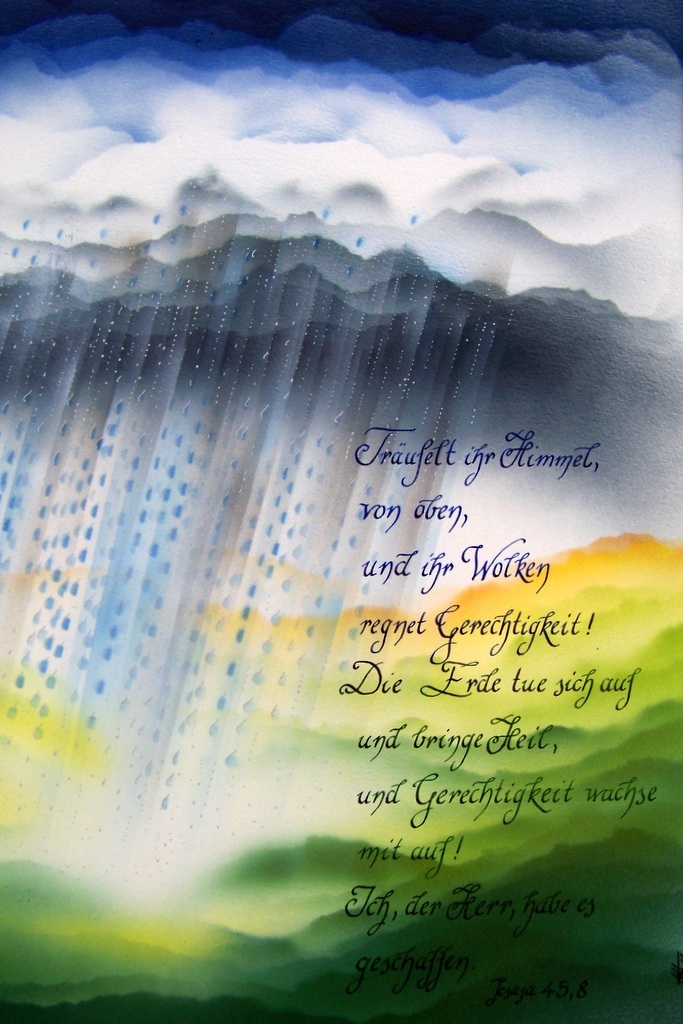 Träufelt ihr Himmel,
von oben,
und ihr Wolken
regnet Gerechtigkeit!
Die Erde tue sich auf
und bringe Heil,
und Gerechtigkeit wachse
mit auf!
Ich, der Herr, habe es
geschaffen.
Jesaja 45,8